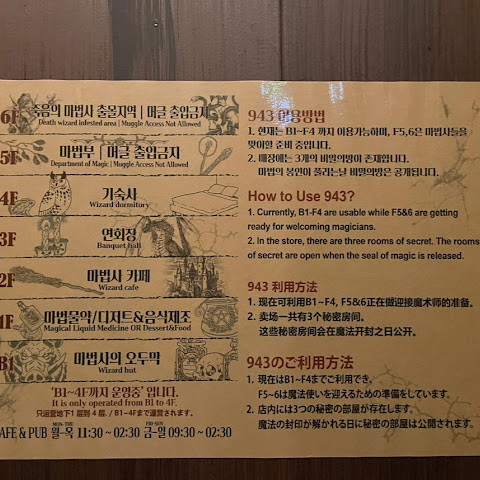 6F 죽음의 마법사 출몰지역 | 머글 출입금지
Death wizard infested area | Muggle Access Not Allowed
5F 마법부 | 머글 출입금지
Department of Magic | Muggle Access Not Allowed
4F 기숙사
Wizard dormitory
3F 연회장
Banquet hall
2F 마법사 카페
Wizard cafe
1F 마법물약/디저트&음식제조
Magical Liquid Medicine OR Dessert&Food
B1 마법사의 오두막
Wizard hut
'B1~4F까지 운영중' 입니다.
It is only operated from B1 to 4F.
只运营地下1层到4层. / B1~4Fまで運営されます。
CAFE & PUB MON-THU 월-목 11:30 ~ 02:30 FRI-SUN 금-일 09:30 ~ 02:30
943 이용방법
1. 현재는 B1~F4 까지 이용가능하며, F5,6은 마법사들을
맞이할 준비 중입니다.
2. 매장에는 3개의 비밀의방이 존재합니다.
마법의 봉인이 풀리는날 비밀의방은 공개됩니다.
How to Use 943?
1. Currently, B1-F4 are usable while F5&6 are getting
ready for welcoming magicians.
2. In the store, there are three rooms of secret. The rooms
of secret are open when the seal of magic is released.
943 利用方法
1. 现在可利用B1~F4, F5&6正在做迎接魔术师的准备。
2. 卖场一共有3个秘密房间。
这些秘密房间会在魔法开封之日公开。
943のご利用方法
1. 現在はB1~F4までご利用でき、
F5~6は魔法使いを迎えるための準備をしています。
2. 店内には3つの秘密の部屋が存在します.
魔法の封印が解かれる日に秘密の部屋は公開されます。